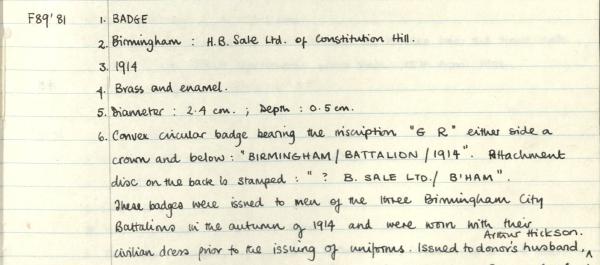 F89'81 1. BADGE
2. Birmingham : H.B. Sale Ltd. of Constitution Hill.
3. 1914
4. Brass and enamel.
5. Diameter : 2.4 cm. ; Depth : 0.5 cm.
6. Convex circular badge bearing the inscription "G R" either side a
crown and below : "BIRMINGHAM / BATTALION / 1914". Attachment
disc on the back is stamped : " ? B. SALE LTD. / B'HAM".
These badges were issued to men of the three Birmingham City
Battalions in the autumn of 1914 and were worn with their
Arthur Hickson.
civilian dress prior to the issuing of uniforms. Issued to donor's husband, ^